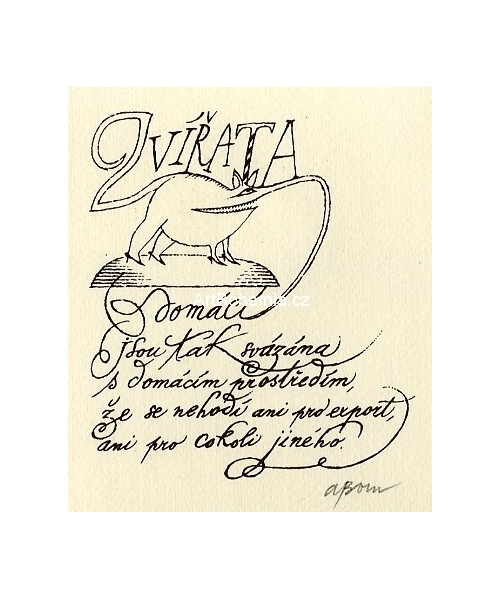 ZVÍŘATA
domácí
jsou tak svázána
s domácím prostředím,
že se nehodí ani pro export,
ani pro cokoli jiného.
ABorn